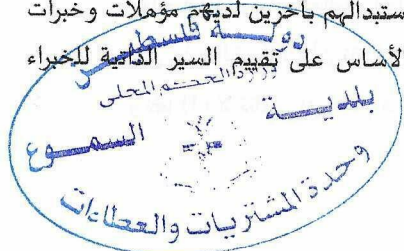 ستبدالهم بآخرين لديهم مؤهلات وخبرات
لأساس على تقييم السير الذاتية للخبراء
دولة فلسطين
وزارة الحكم المحلي
بلدية السموع
وحدة المشتريات والعطاءات